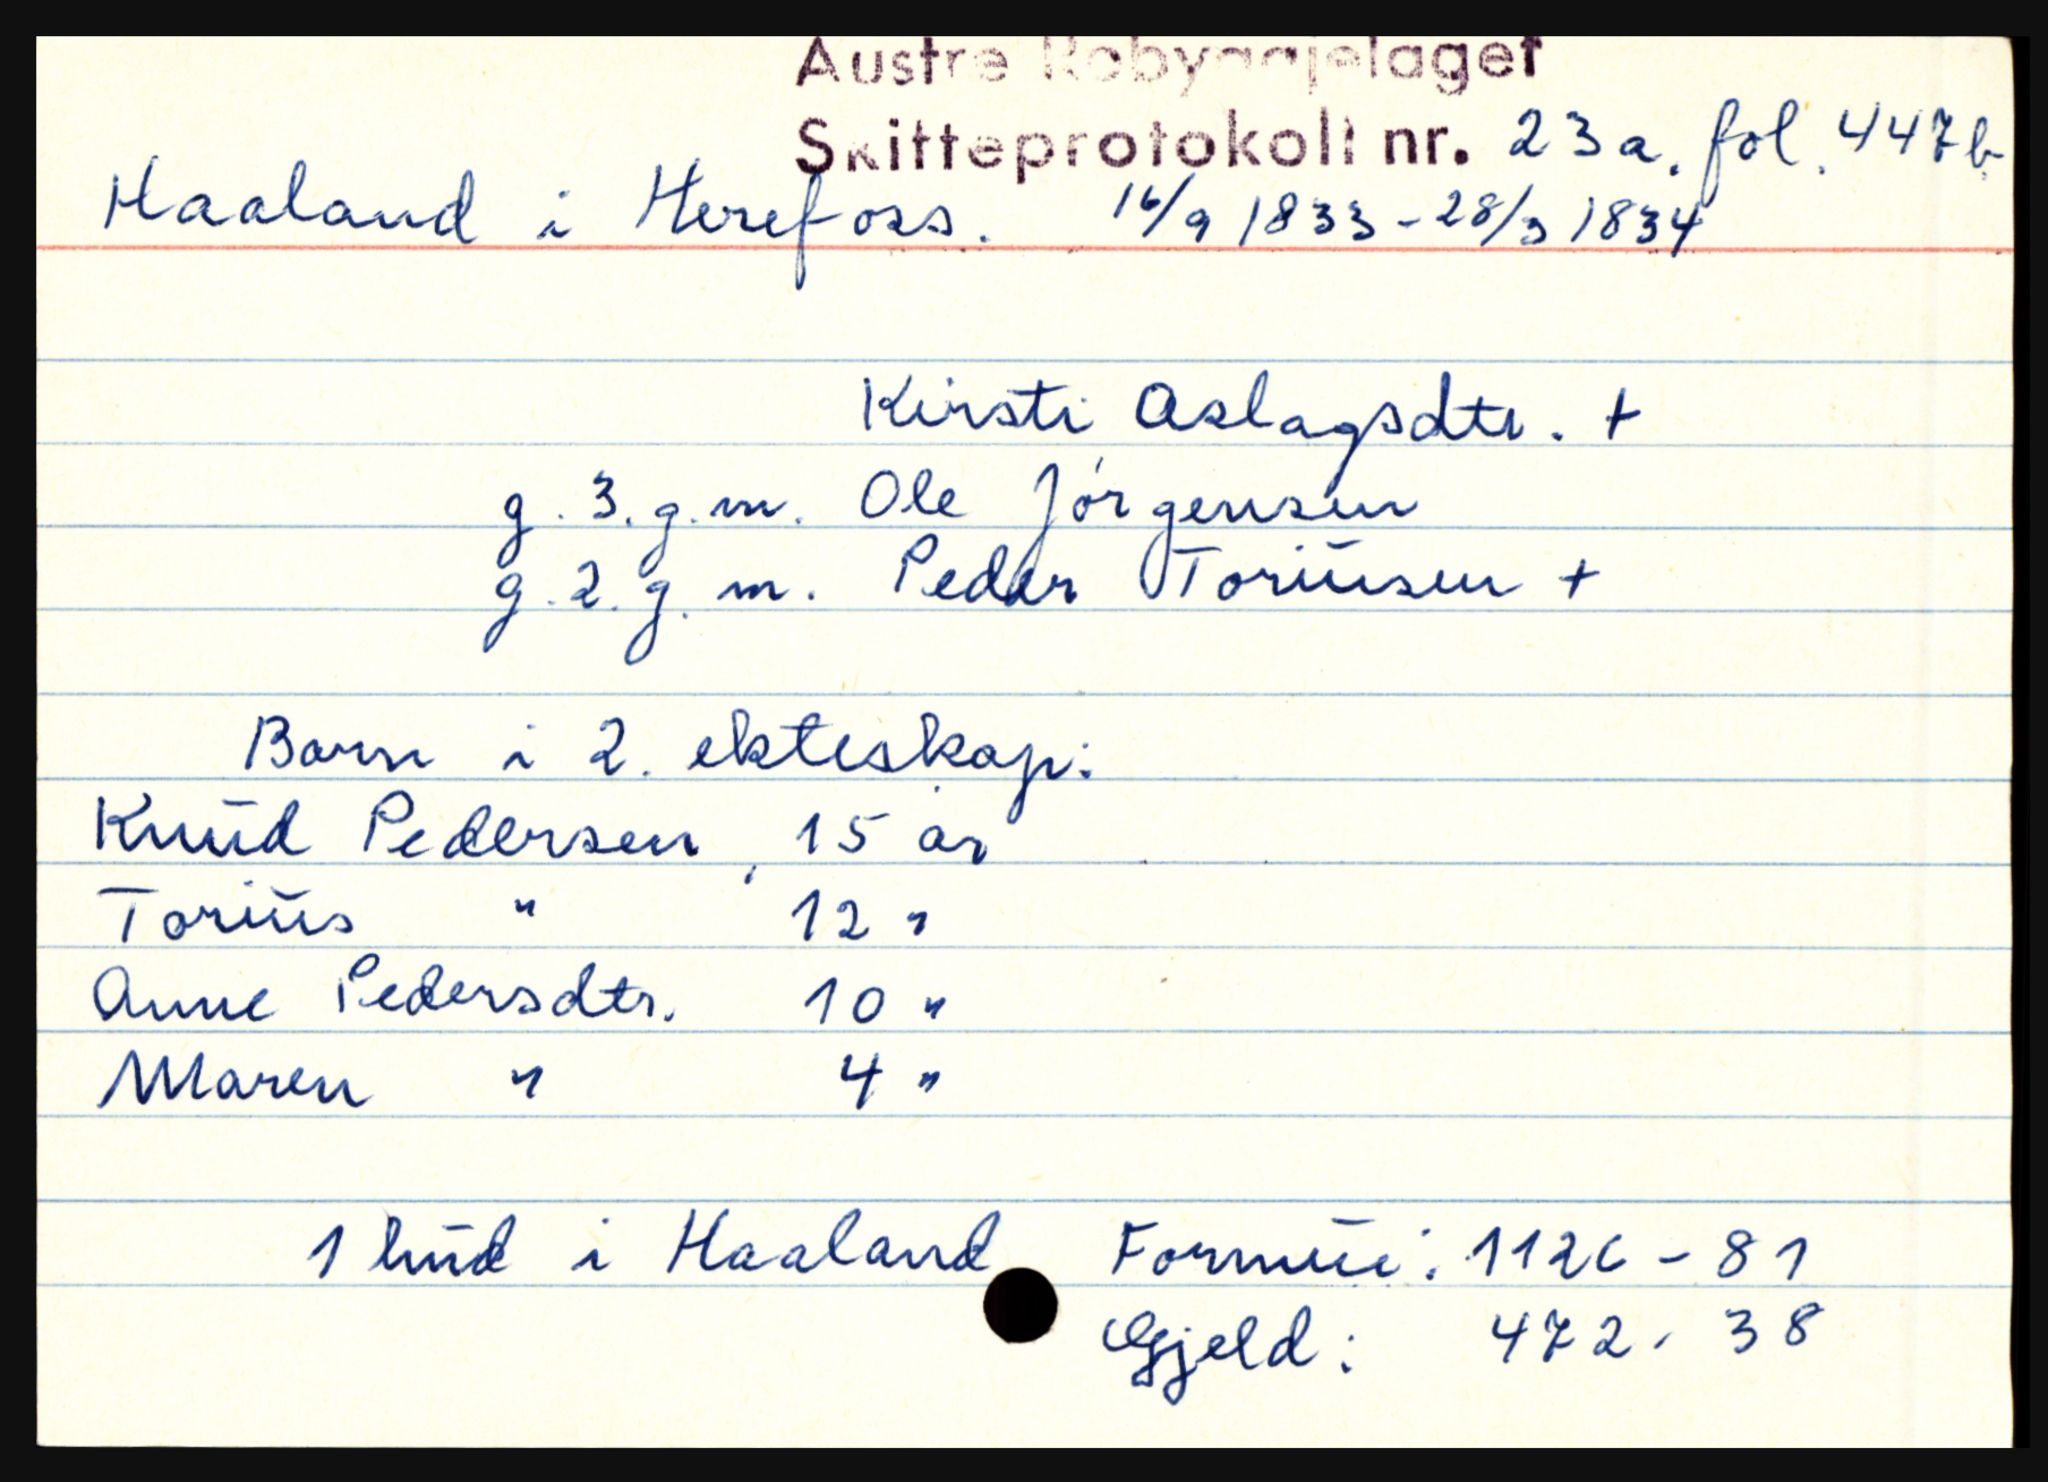 Austre Robyggjelaget
Skifteprotokoll nr. 23a. fol. 447b
Haaland i Herefoss. 16/9 1833 - 28/3 1834
Kirsti Aslagsdtr. +
g. 3. g. m. Ole Jörgensen
g. 2. g. m. Peder Toriusen +
Barn i 2. ekteskap:
Knud Pedersen, 15 år
Torius " 12 "
Anne Pedersdtr. 10 "
Maren " 4 "
1 hud i Haaland Formue: 1126 - 81
Gjeld: 472 - 38